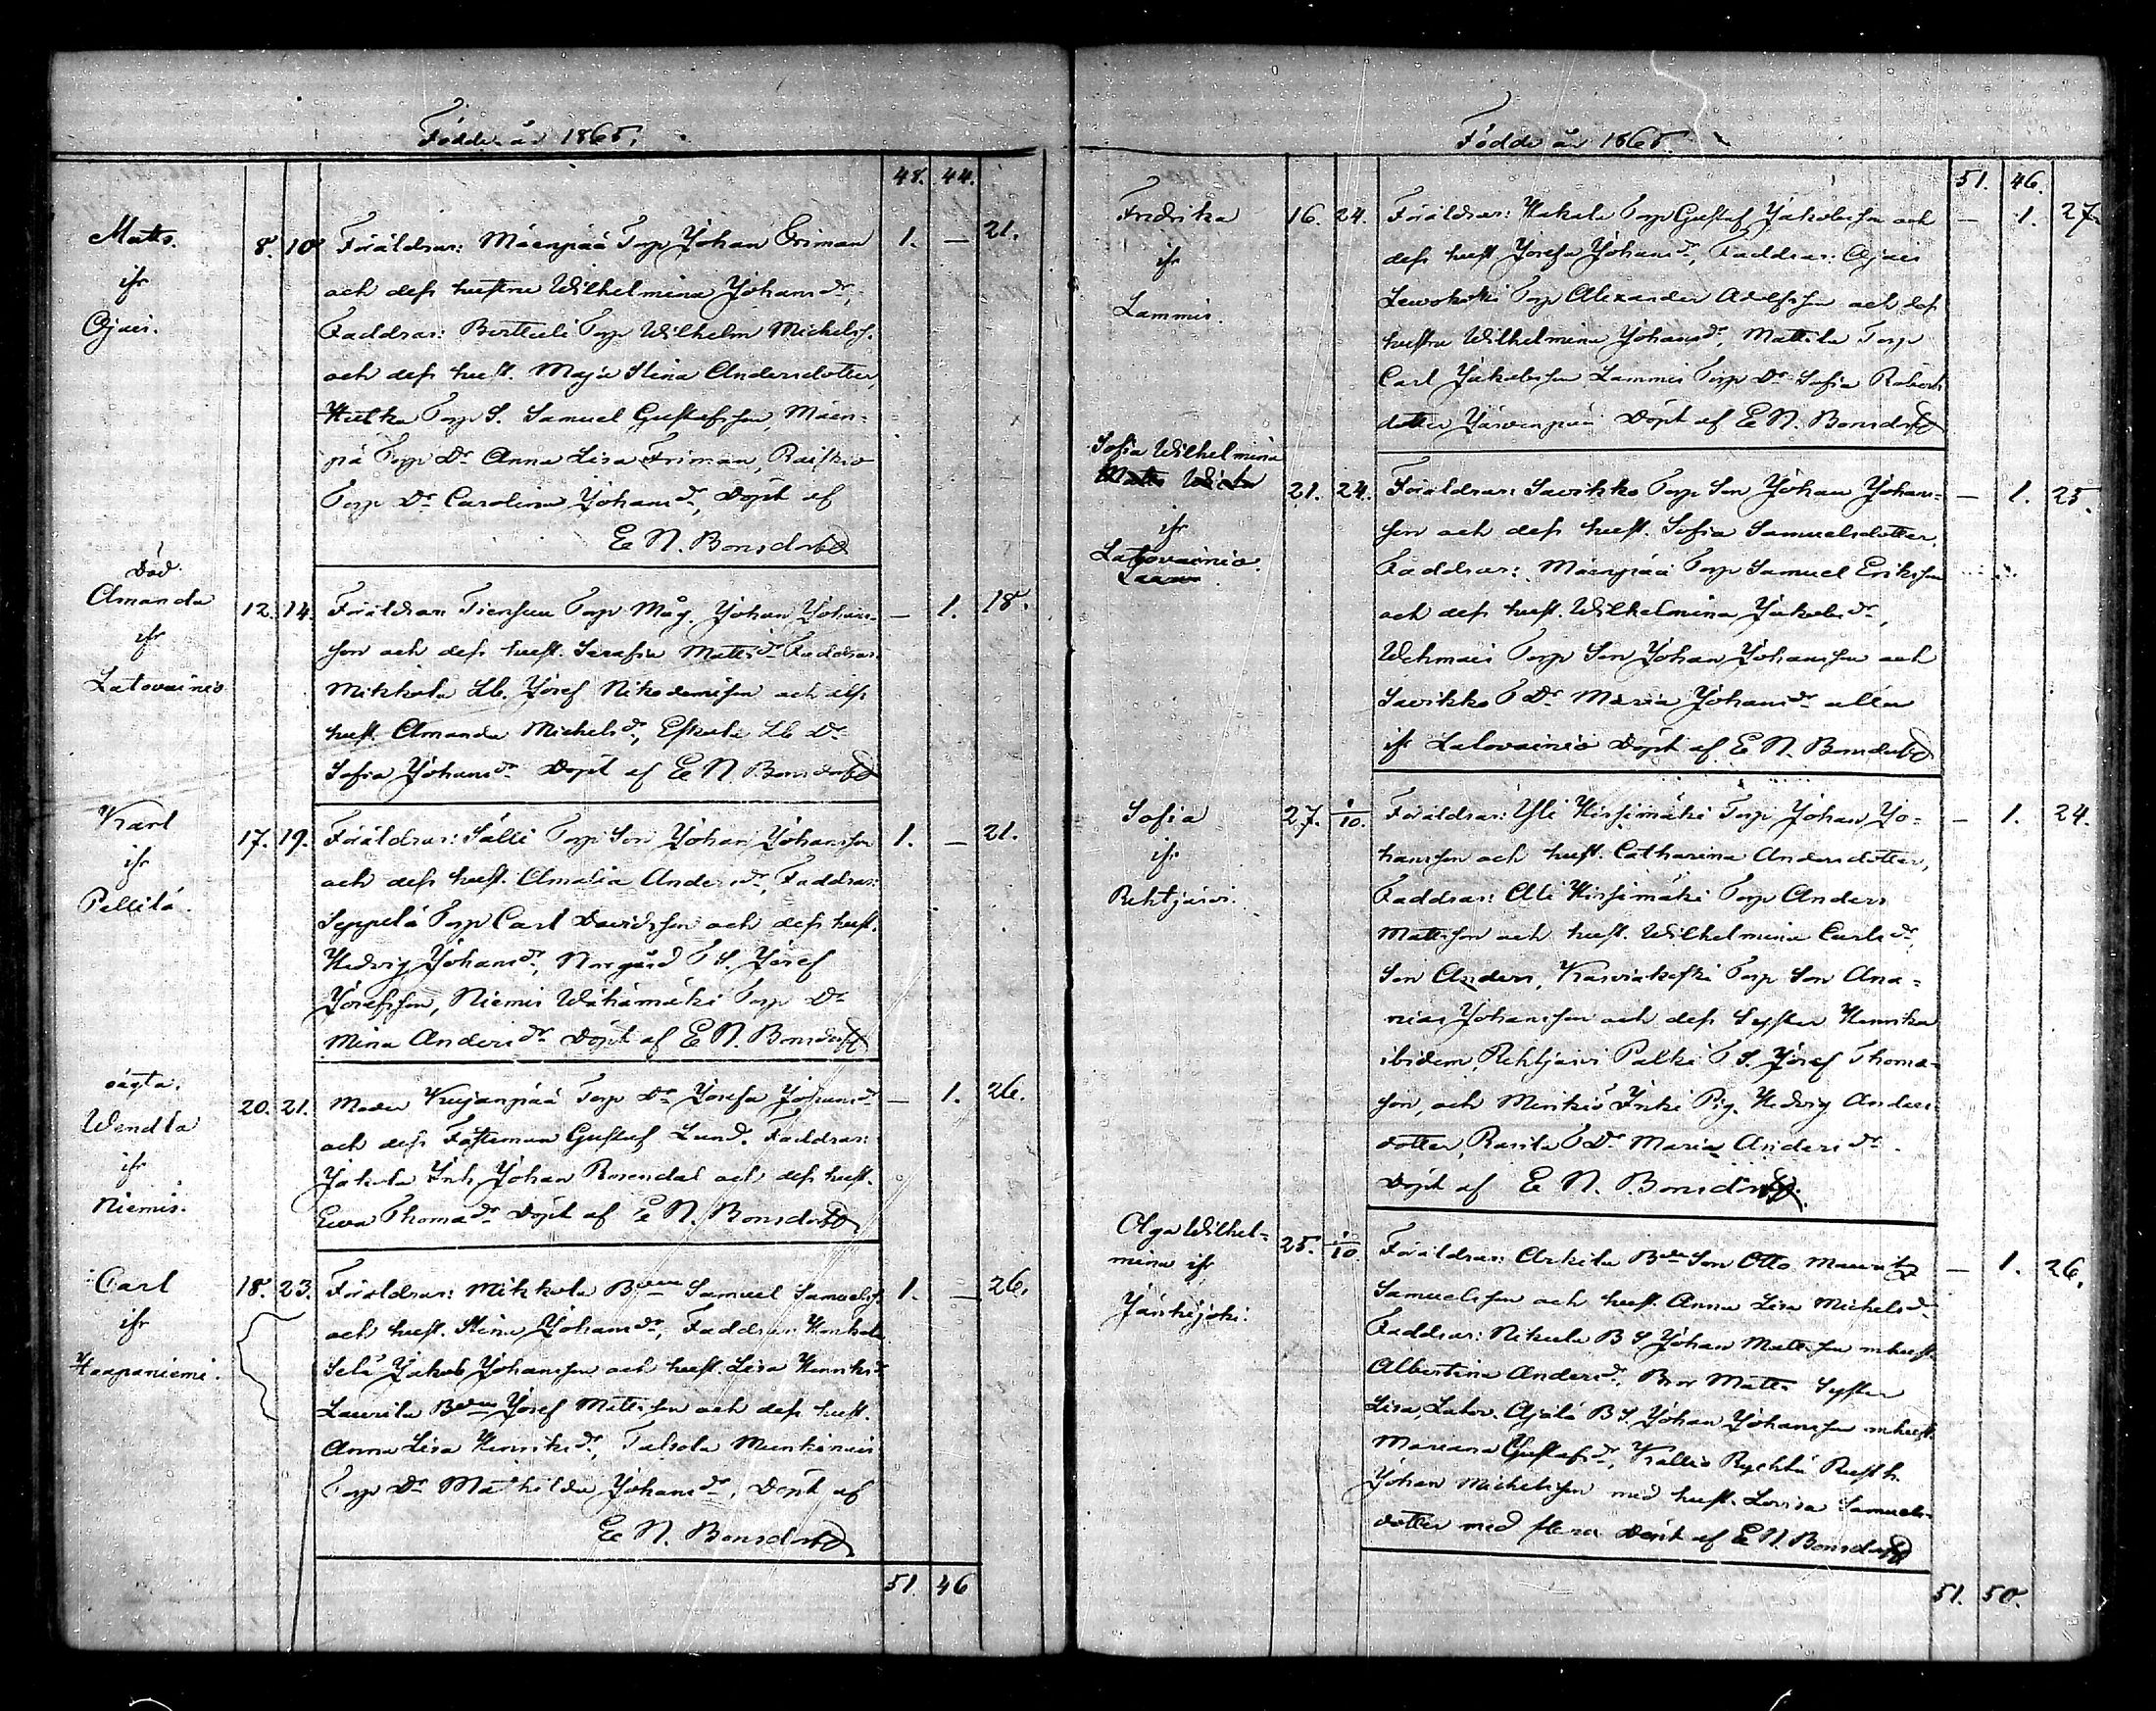 Födde år 1865.
48. 44.
Matts. 8. 10. Föräldrar: Mäenpää Torp Johan Friman 1. — 21.
ifr och dess hustru Wilhelmina Johansdr,
Ojais. Faddrar: Berttuli Torp Wilhelm Michelss.
och dess hust. Maja Stina Andersdotter,
Torp S. Samuel Gustafsson, Mäen-
pä Torp Dr Anna Lisa Friman,
Torp Dr Carolina Johansdr, Döpt af
E N. Bonsdorff
Död.
Amanda 12. 14. Föräldrar: Torp Måg. Johan Johans- — 1. 18.
ifr son och dess hust. Serafia Mattsdr Faddrar:
Latovainio Mikkola Lb. Josef Nikodemisson och dess
hust. Amanda Michelsdr, Eskola Lb Dr
Sofia Johansdr Döpt af E N Bonsdorff
Karl 17. 19. Föräldrar: Sälli Torp Son Johan Johansson 1. — 21.
ifr och dess hust. Amalia Andersdr, Faddrar:
Pellilä. Seppelä Torp Carl Davidsson och dess hust.
Hedvig Johansdr, Norgård T S. Josef
Josefsson, Niemis Wähämäki Torp Dr
Mina Andersdr Döpt af E N. Bonsdorff
oägta.
Wendla 20. 21. Moder Kujanpää Torp Dr Josefa Johansdr — 1. 26.
ifr och dess Fästeman Gustaf Lund. Faddrar:
Niemis. Jakola Inh. Johan Rosendal och dess hust.
Eva Thomasdr Döpt af E N. Bonsdorff
Carl 18. 23. Föräldrar: Mikkola Bden Samuel Samuelss. 1. — 26.
ifr och hust. Stina Johansdr, Faddrar:
Haapaniemi. Jakob Johansson och hust. Lisa Henriksdr
Laurila Bden Josef Mattsson och dess hust.
Anna Lisa Henriksdr, Talsola
Torp Dr Mathilda Johansdr, Döpt af
E N. Bonsdorff
51. 46
Födde år 1865.
51. 46.
Fredrika 16. 24. Föräldrar: Hakala Torp Gustaf Jakobsson och — 1. 27.
ifr dess hust. Josefa Johansdr, Faddrar: Ojais
Lammis. Torp Alexander Adolfsson och dess
hustru Wilhelmina Johansdr, Mattila Torp
Carl Jakobsson Lammis Torp Dr Sofia Roberts
dotter Järvenpää Döpt af E N. Bonsdorff
Sofia Wilhelmina
21. 24. Föräldrar: Savikko Torp Son Johan Johans- — 1. 25.
ifr son och dess hust. Sofia Samuelsdotter,
Latovainio. Faddrar: Mäenpää Torp Samuel Eriksson
och dess hust. Wilhelmina Jakobsdr,
Wehmais Torp Son Johan Johansson och
Savikko T Dr Maria Johansdr alla
ifr Latovainio Döpt af E N. Bonsdorff
Sofia 27. 1/10. Föräldrar: Yli Hirsimäki Torp Johan Jo- — 1. 24.
ifr hansson och hust. Catharina Andersdotter,
Rehtjärvi. Faddrar: Ali Hirsimäki Torp Anders
Mattsson och hust. Wilhelmina Carlsdr,
Son Anders, Torp Son Ana-
nias Johansson och dess Syster Henrika
ibidem, Rehtjärvi Palki T S. Josef Thomas-
son, och Pig. Hedvig Anders-
dotter, T Dr Maria Andersdr.
Döpt af E N. Bonsdorff.
Olga Wilhel- 25. 1/10. Föräldrar: Arkila Bde Son Otto Mauritz — 1. 26.
mina ifr Samuelsson och hust. Anna Lisa Michelsdr
Jänhijoki. Faddrar: Nikula B S Johan Mattsson m hust.
Albertina Andersdr, Bror Matts Syster
Lisa, Ajalä B S. Johan Johansson m hust.
Mariana Gustafsdr, Kallio Rusth.
Johan Michelsson med hust. Lovisa Samuels-
dotter med flera Döpt af E N. Bonsdorff
51. 50.